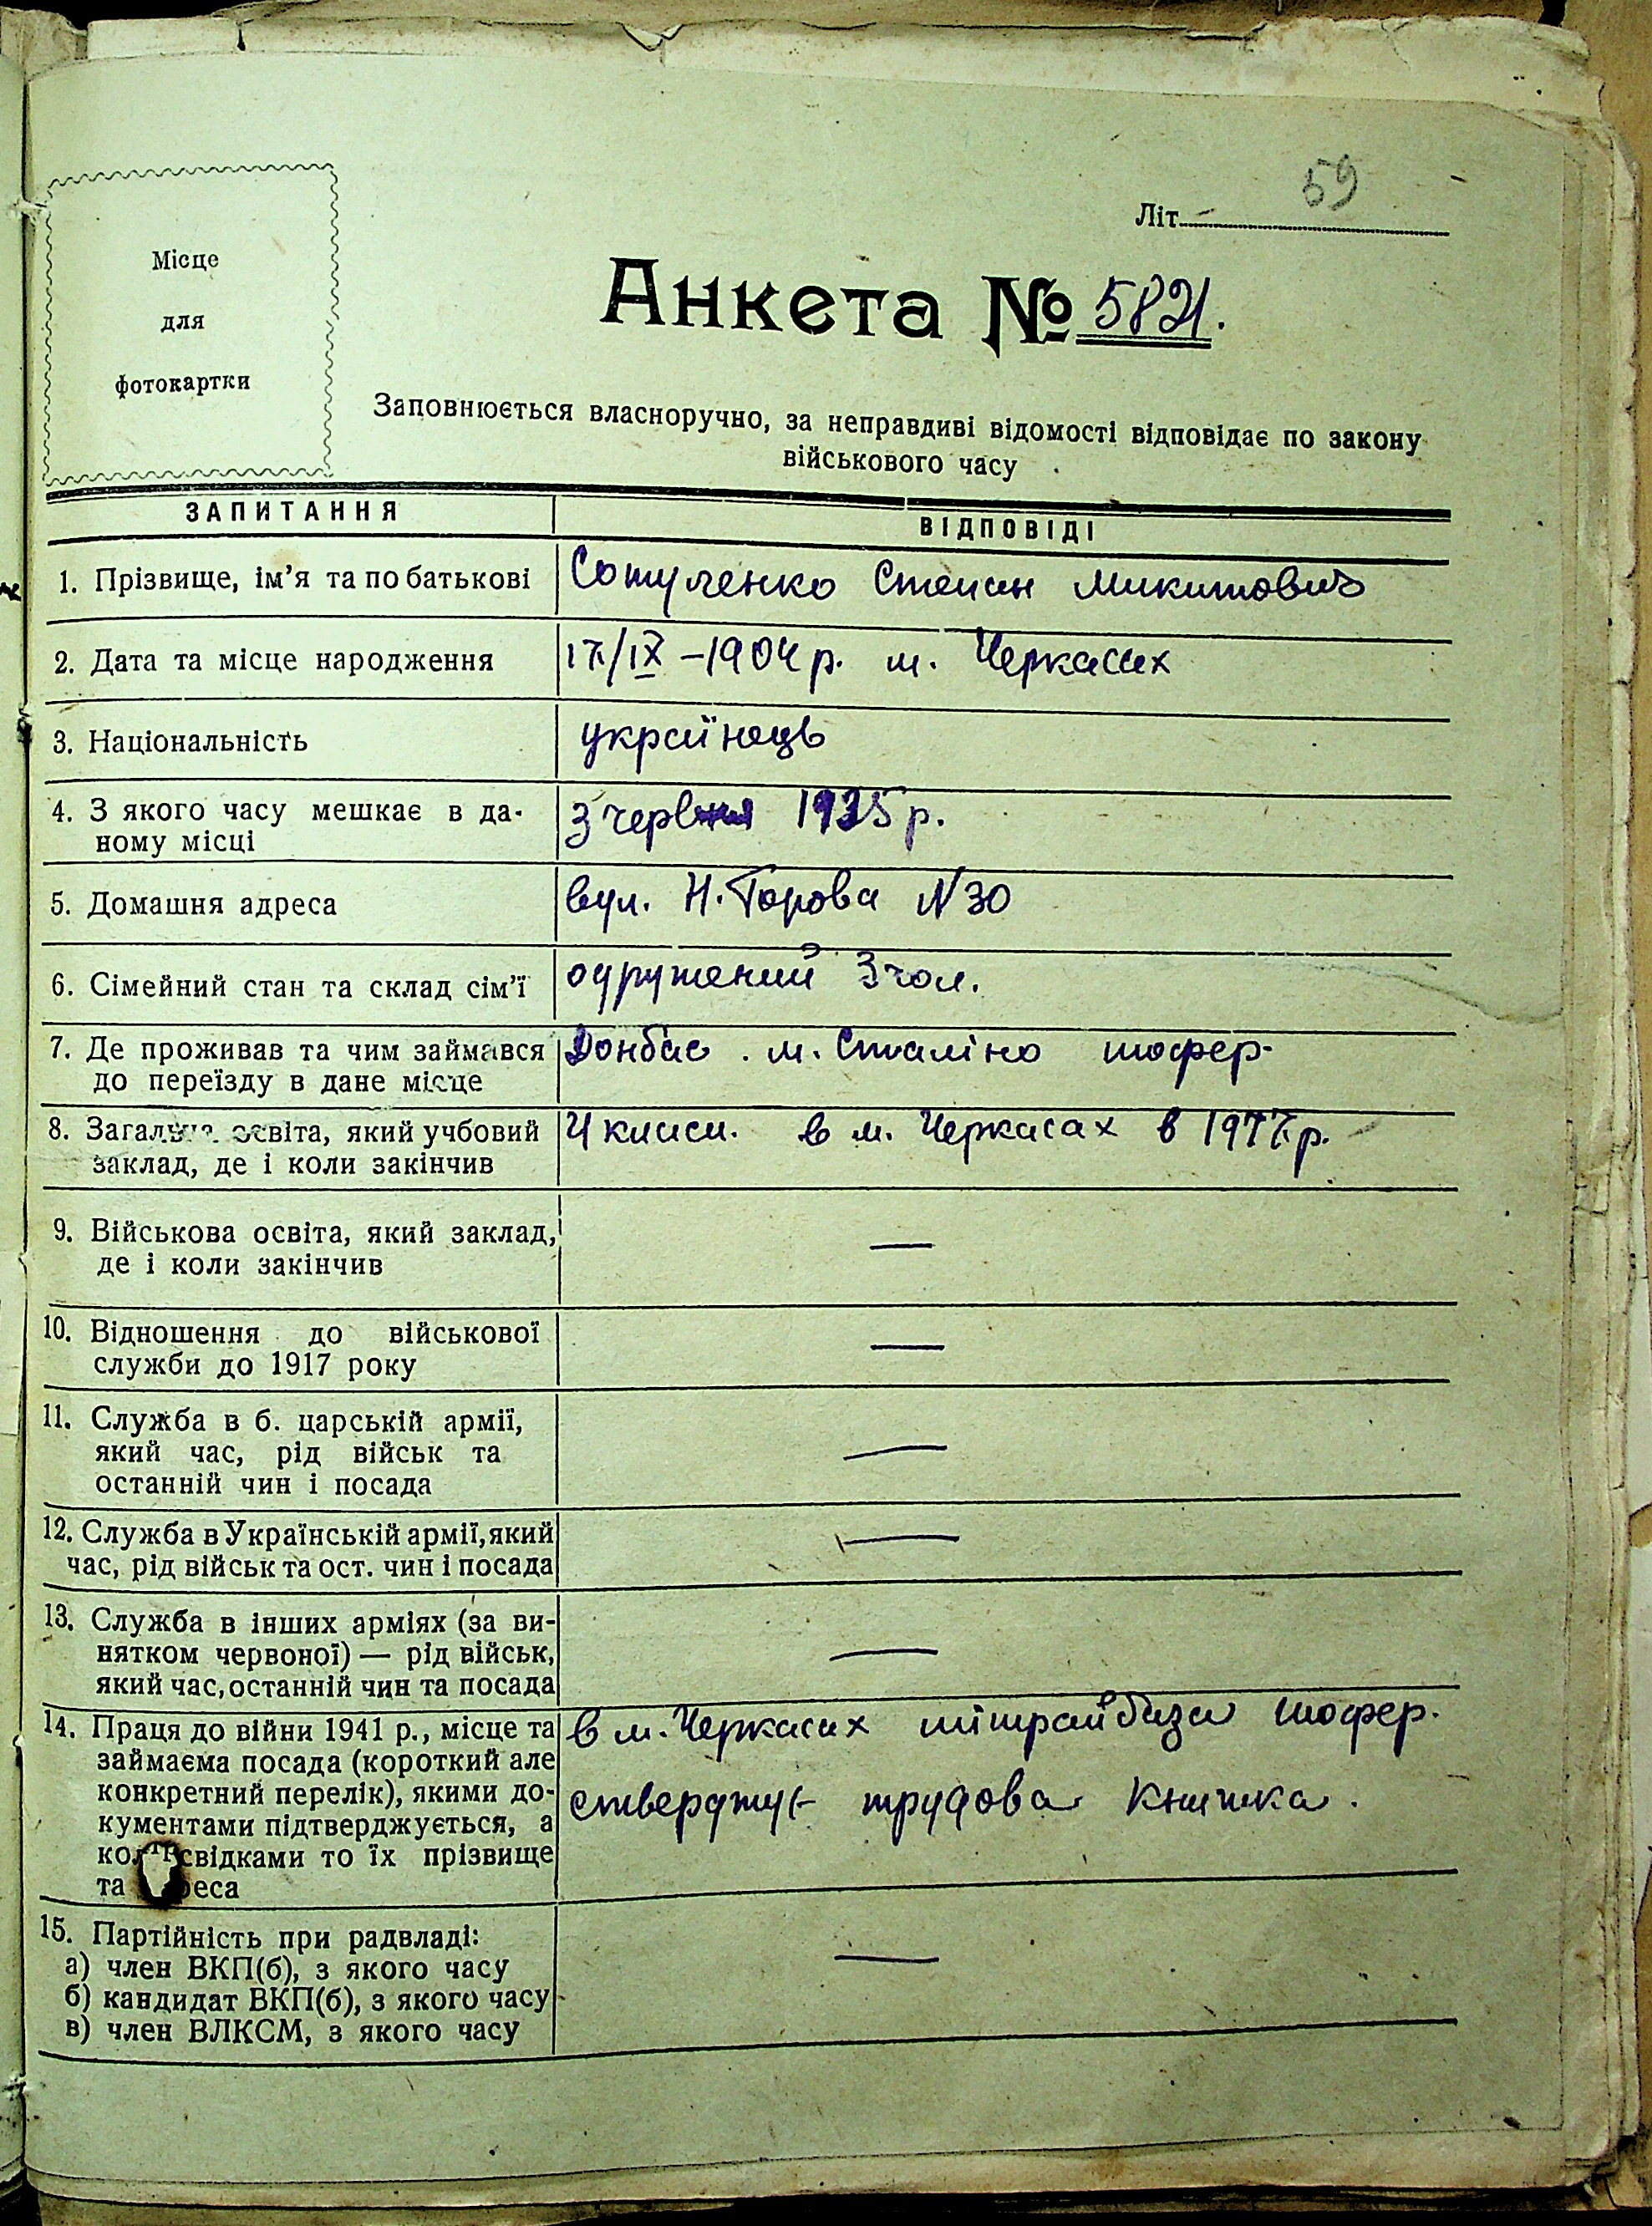 59
Літ.
Місце
для
фотокартки
Анкета № 5821.
Заповнюється власноручно, за неправдиві відомості відповідає по закону
військового часу
ЗАПИТАННЯ ВІДПОВІДІ
1. Прізвище, ім'я та по батькові Сотуленко Степан Микитович
2. Дата та місце народження 17/IX – 1904 р. м. Черкасах
3. Національність українець
4. З якого часу мешкає в да-
ному місці
З червня 1935 р.
5. Домашня адреса вул. Н. Горова N 30
6. Сімейний стан та склад сім'ї одружений 3 чол.
7. Де проживав та чим займався
до переїзду в дане місце
Донбас. м. Сталіно шофер.
8. Загальна освіта, який учбовий
заклад, де і коли закінчив
4 класи. в м. Черкасах в 1917 р.
9. Військова освіта, який заклад,
де і коли закінчив
—
10. Відношення до військової
служби до 1917 року
—
11. Служба в б. царській армії,
який час, рід військ та
останній чин і посада
—
12. Служба в Українській армії, який
час, рід військ та ост. чин і посада
—
13. Служба в інших арміях (за ви-
нятком червоної) — рід військ,
який час, останній чин та посада
—
14. Праця до війни 1941 р., місце та
займаєма посада (короткий але
конкретний перелік), якими до-
кументами підтверджується, а
свідками то їх прізвище
та
в м. Черкасах шофер.
стверджує трудова книжка.
15. Партійність при радвладі:
а) член ВКП(б), з якого часу
б) кандидат ВКП(б), з якого часу
в) член ВЛКСМ, з якого часу
—